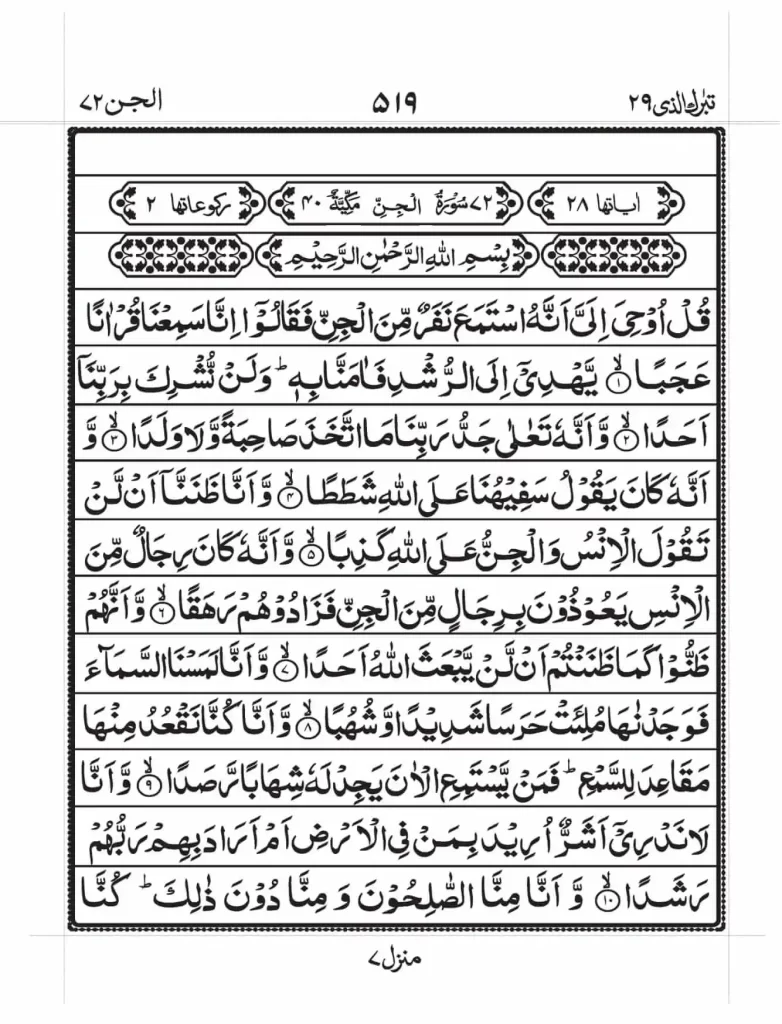 تبٰرك الذى ٢٩ ۵١٩ الجن ٧٢
اٰياتها ٢٨ ٧٢ سُوْرَةُ الْجِنِّ مَكِّيَّةٌ ٤٠ ركوعاتها ٢
بِسْمِ اللهِ الرَّحْمٰنِ الرَّحِيْمِ
قُلْ اُوْحِیَ اِلَیَّ اَنَّهُ اسْتَمَعَ نَفَرٌ مِّنَ الْجِنِّ فَقَالُوْۤا اِنَّا سَمِعْنَا قُرْاٰنًا
عَجَبًا ۙ﴿١﴾ یَّهْدِیْۤ اِلَی الرُّشْدِ فَاٰمَنَّا بِهٖ ؕ وَلَنْ نُّشْرِكَ بِرَبِّنَاۤ
اَحَدًا ۙ﴿٢﴾ وَّاَنَّهٗ تَعٰلٰی جَدُّ رَبِّنَا مَا اتَّخَذَ صَاحِبَةً وَّلَا وَلَدًا ۙ﴿٣﴾ وَّ
اَنَّهٗ كَانَ یَقُوْلُ سَفِیْهُنَا عَلَی اللهِ شَطَطًا ۙ﴿٤﴾ وَّاَنَّا ظَنَنَّاۤ اَنْ لَّنْ
تَقُوْلَ الْاِنْسُ وَالْجِنُّ عَلَی اللهِ كَذِبًا ۙ﴿۵﴾ وَّاَنَّهٗ كَانَ رِجَالٌ مِّنَ
الْاِنْسِ یَعُوْذُوْنَ بِرِجَالٍ مِّنَ الْجِنِّ فَزَادُوْهُمْ رَهَقًا ۙ﴿٦﴾ وَّاَنَّهُمْ
ظَنُّوْا كَمَا ظَنَنْتُمْ اَنْ لَّنْ یَّبْعَثَ اللهُ اَحَدًا ۙ﴿٧﴾ وَّاَنَّا لَمَسْنَا السَّمَآءَ
فَوَجَدْنٰهَا مُلِئَتْ حَرَسًا شَدِیْدًا وَّشُهُبًا ۙ﴿٨﴾ وَّاَنَّا كُنَّا نَقْعُدُ مِنْهَا
مَقَاعِدَ لِلسَّمْعِ ؕ فَمَنْ یَّسْتَمِعِ الْاٰنَ یَجِدْ لَهٗ شِهَابًا رَّصَدًا ۙ﴿٩﴾ وَّاَنَّا
لَا نَدْرِیْۤ اَشَرٌّ اُرِیْدَ بِمَنْ فِی الْاَرْضِ اَمْ اَرَادَ بِهِمْ رَبُّهُمْ
رَشَدًا ۙ﴿١٠﴾ وَّاَنَّا مِنَّا الصّٰلِحُوْنَ وَمِنَّا دُوْنَ ذٰلِكَ ؕ كُنَّا
منزل ٧